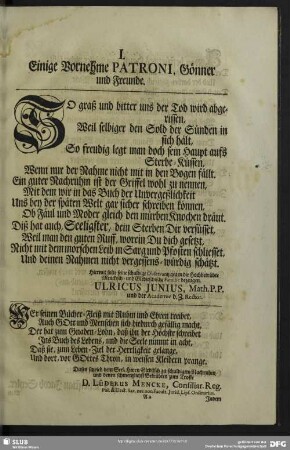 I.
Einige Vornehme PATRONI, Gönner
und Freunde.
SO graß und bitter uns der Tod wird abge-
rissen,
Weil selbiger den Sold der Sünden in
sich hält,
So freudig legt man doch sein Haupt aufs
Sterbe-Küssen,
Wenn nur der Nahme nicht mit in den Bogen fällt.
Ein guter Nachruhm ist der Griffel wohl zu nennen,
Mit dem wir in das Buch der Unvergeßlichkeit
Uns bey der späten Welt gar sicher schreiben können,
Ob Fäul und Moder gleich den mürben Knochen dräut.
Diß hat auch, Seeligster, dem Sterben Dir versüsset,
Weil man den guten Ruff, worein Du dich gesetzt,
Nicht mit dem morschen Leib in Sarg und Pfosten schliesset,
Und deinen Nahmen nicht vergessens-würdig schätzt.
ULRICUS JUNIUS, Math. P.P.
und der Academie d. Z. Rector.
WEr seinen Bücher-Fleiß mit Ruhm und Ehren treibet,
Auch GOtt und Menschen sich hiedurch gefällig macht,
Der hat zum Gnaden-Lohn, daß ihn der Höchste schreibet
Ins Buch des Lebens, und die Seele nimmt in acht,
Daß sie, zum Leben-Ziel der Herrligkeit gelange,
Und dort, vor GOttes Thron, in weissen Kleidern prange.
D. LÜDERUS MENCKE, Consiliar. Reg.
A 2
Indem
SLUB